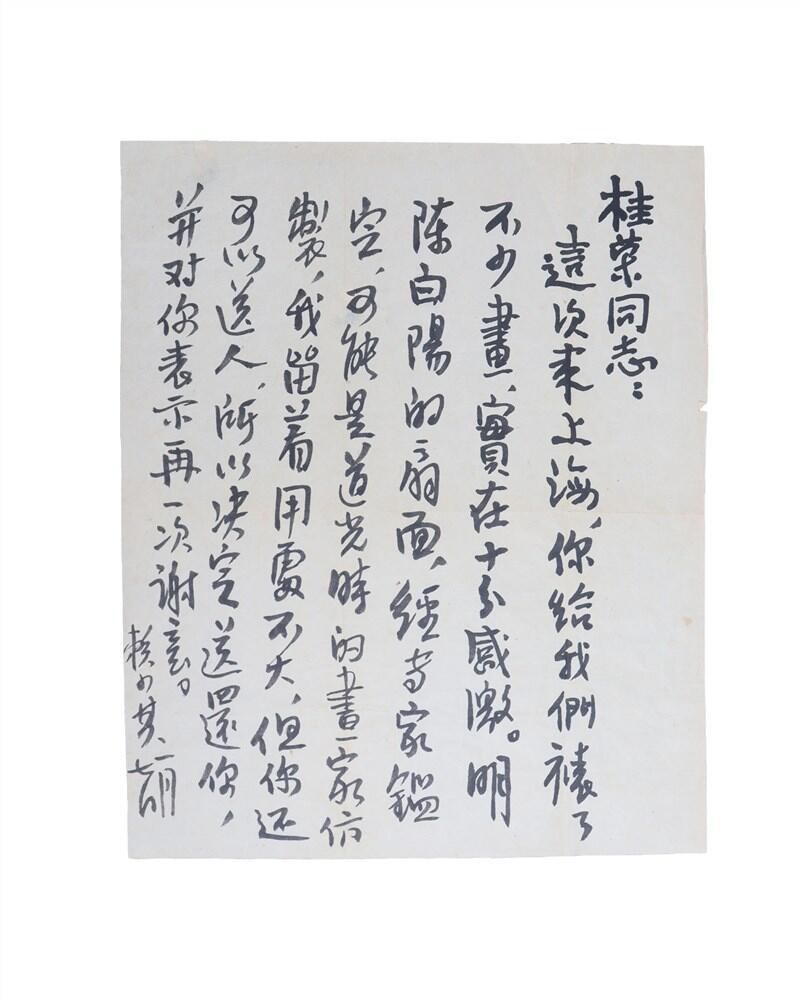 桂荣同志：
這次来上海，你给我們裱了
不少畫，實在十分感激。明
陈白陽的扇面，經专家鑑
定，可能是道光時的畫家仿
製，我留着用處不大，但你还
可以送人，所以决定送回還你，
并对你表示再一次谢意。
赖少其